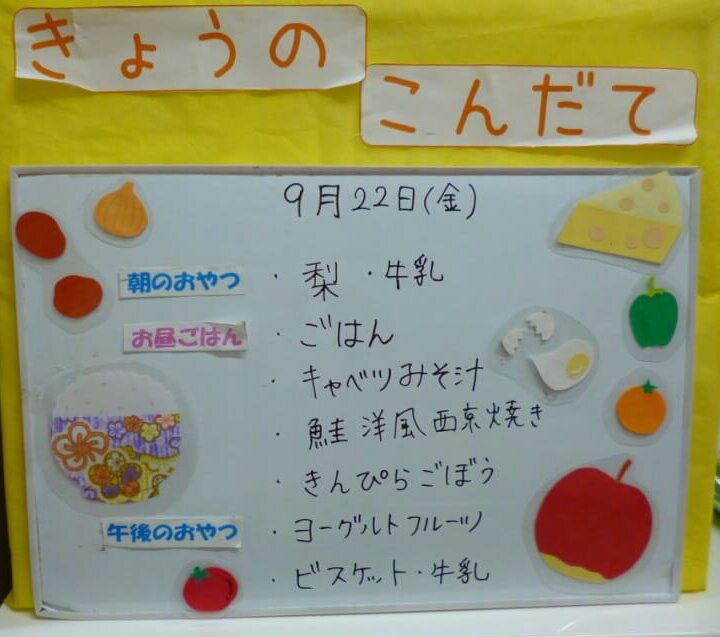 きょうの
こんだて
9月22日(金)
朝のおやつ ・梨 ・牛乳
お昼ごはん ・ごはん
・キャベツみそ汁
・鮭洋風西京焼き
・きんぴらごぼう
午後のおやつ ・ヨーグルトフルーツ
・ビスケット・牛乳